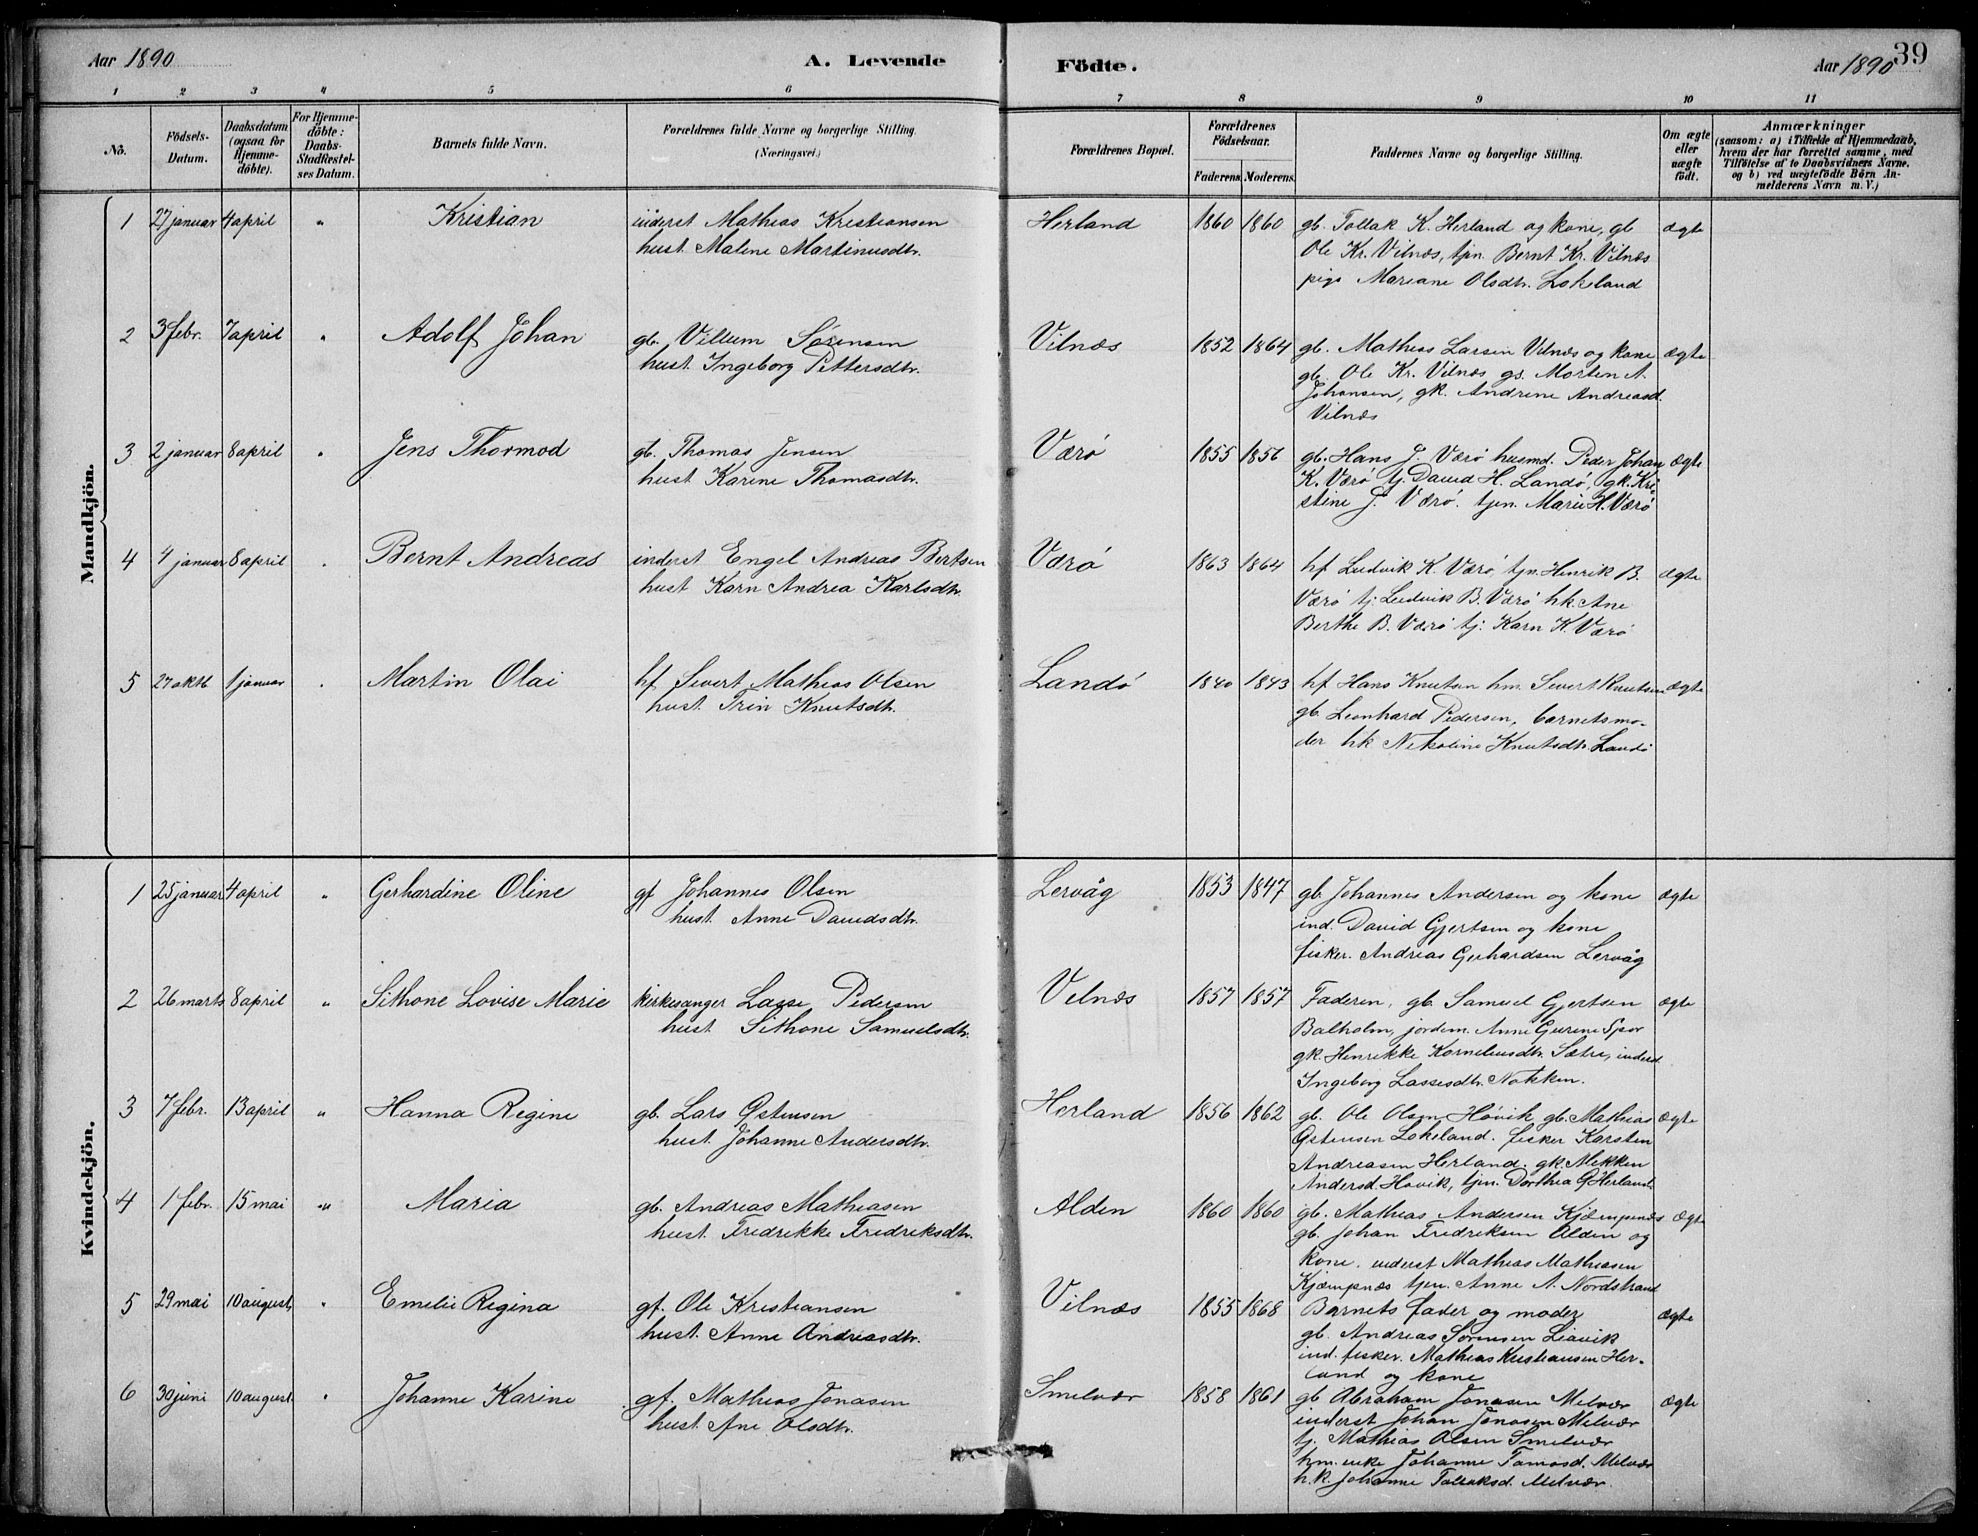 Aar 1890
A. Levende
Födte.
Aar 1890
39
1 2 3 4 5 6 7 8 9 10 11
No.
Födsels-
Datum.
Daabsdatum
(ogsaa for
Hjemme-
döbte).
For Hjemme-
döbte:
Daabs-
Stadfestel-
ses Datum.
Barnets fulde Navn.
Forældrenes fulde Navne og borgerlige Stilling.
(Næringsvei.)
Forældrenes Bopæl.
Forældrenes
Födselsaar.
Faderens. Moderens.
Faddernes Navne og borgerlige Stilling.
Om ægte
eller
uægte
födt.
Anmærkninger
(saasom: a) i Tilfælde af Hjemmedaab,
hvem der har forrettet samme, med
Tilföielse af to Daabsvidners Navne.
og b) ved uægtefödte Börn An-
melderens Navn m. V.)
Mandkjön.
1 27 januar 4 april " Kristian inderst Mathias Kristiansen Herland 1860 1860 gb. Tollak K. Herland og kone, gb ægte
hust. Malene Martinusdtr. Ole Kr. Vilnæs, tjn. Bernt Kr. Vilnæs
pige Mariane Olsdtr. Lokeland
2 3 febr. 7 april " Adolf Johan gb. Villum Sørensen Vilnæs 1852 1864 gb. Mathias Larsen Vilnæs og kone ægte
hust. Ingeborg Pettersdtr. gb. Ole Kr. Vilnæs gs. Morten A.
Johansen, gk. Andrine Andreasd.
Vilnæs
3 2 januar 8 april " Jens Thormod gb. Thomas Jensen Værö 1855 1856 gb. Hans J. Værö husmd. Peder Johan ægte
hust Karine Thomasdtr. K. Værö tj. David H. Landö, gk. Kri-
stine J. Værö. tjen. Marie H. Værö
4 4 januar 8 april " Bernt Andreas inderst Engel Andreas Bertsen Værö 1863 1864 hf Ludvik K. Værö, tjn. Henrik B. ægte
hust Karn Andrea Karlsdtr. Værö tj. Ludvik B. Værö hk. Ane
Berthe B. Værö tj. Karn K. Værö
5 27 oktb 1 januar " Martin Olai hf Sivert Mathias Olsen Landö 1840 1843 hf Hans Knutsen hm. Sivert Knutsen ægte
hust. Trin Knutsdtr. gb. Leonhard Pedersen, barnets mo-
der hk Nikoline Knutsdtr. Landö
Kvindekjön.
1 25 januar 4 april " Gerhardine Oline gf Johannes Olsen Lervåg 1853 1847 gb. Johannes Andersen og kone ægte
hust. Anne Davidsdtr. ind. David Gjertsen og kone
fisker. Andreas Gerhardsen Lervåg
2 26 marts 8 april " Sithone Lovise Marie kirkesanger Lasse Pedersen Vilnæs 1857 1857 Faderen, gb. Samuel Gjertsen ægte
hust Sithone Samuelsdtr. Balholm, jordem. Anne Gurine Spor
gk. Henrikke Korneliusdtr. Sætre, inderst
Ingeborg Lassesdtr. Nokken.
3 7 febr. 13 april " Hanna Regine gb. Lars Østensen Herland 1856 1862 gb. Ole Olsen Hövik, gb. Mathias ægte
hust. Johanne Andersdtr. Østensen Lokeland. fisker Karsten
Andreasen Herland. gk. Mekken
Andersd. Hovik, tjen. Dorthea Ø Herland.
4 1 febr. 15 mai " Maria gb. Andreas Mathiasen Alden 1860 1860 gb. Mathias Andersen Kjæmpenæs ægte
hust. Fredrikke Fredriksdtr. gb. Johan Fredriksen Alden og
kone. inderst Mathias Mathiasen
Kjæmpnæs tjen. Anne A. Nordstrand
5 29 mai 10 august " Emelie Regina gf. Ole Kristiansen Vilnæs 1855 1868 Barnets fader og moder ægte
hust. Anne Andreasdtr. gb. Andreas Sørensen Liavik
ind. fisker. Mathias Kristiansen Her-
land og kone
6 30 juni 10 august " Johanne Karine gf. Mathias Jonasen Smelvær 1858 1861 gb Abraham Jonasen Melvær ægte
hust Ane Olsdtr. inderst Johan Jonasen Melvær
tj. Mathias Olsen Smelvær
hm. enke Johanne Tomasd. Melvær
h.k. Johanne Tollaksd. Melvær.